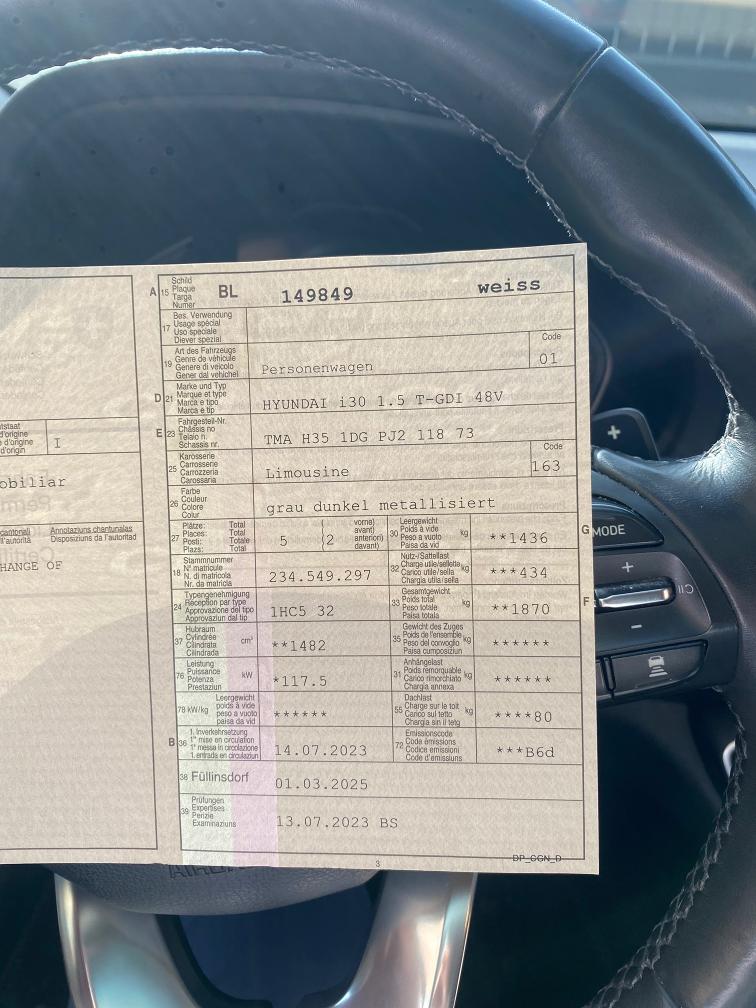 tstaat
d'origine
e d'origine
d'origin
I
obiliar
cantonali
l'autorità
Annotaziuns chantunalas
Disposiziuns da l'autoritad
HANGE OF
A 15 Schild
Plaque
Targa
Numer
BL 149849 weiss
17 Bes. Verwendung
Usage spécial
Uso speciale
Diever spezial
19 Art des Fahrzeugs
Genre de véhicule
Genere di veicolo
Gener dal vehichel
Personenwagen
Code
01
D 21 Marke und Typ
Marque et type
Marca e tipo
Marca e tip
HYUNDAI i30 1.5 T-GDI 48V
E 23 Fahrgestell-Nr.
Châssis no
Telaio n.
Schassis nr.
TMA H35 1DG PJ2 118 73
25 Karosserie
Carrosserie
Carrozzeria
Carossaria
Limousine
Code
163
26 Farbe
Couleur
Colore
Colur
grau dunkel metallisiert
27 Plätze: Total
Places: Total
Posti: Totale
Plazs: Total
5 (2 vorne)
avant)
anteriori)
davant)
30 Leergewicht
Poids à vide
Peso a vuoto
Paisa da vid
kg
**1436
G
18 Stammnummer
N° matricule
N. di matricola
Nr. da matricla
234.549.297
32 Nutz-/Sattellast
Charge utile/sellette
Carico utile/sella
Chargia utila/sella
kg
***434
24 Typengenehmigung
Réception par type
Approvazione del tipo
Approvaziun dal tip
1HC5 32
33 Gesamtgewicht
Poids total
Peso totale
Paisa totala
kg
**1870
F
37 Hubraum
Cylindrée
Cilindrata
Cilindrada
cm³
**1482
35 Gewicht des Zuges
Poids de l'ensemble
Peso del convoglio
Paisa cumposiziun
kg
******
76 Leistung
Puissance
Potenza
Prestaziun
kW
*117.5
31 Anhängelast
Poids remorquable
Carico rimorchiato
Chargia annexa
kg
******
78 kW/kg
Leergewicht
poids à vide
peso a vuoto
paisa da vid
******
55 Dachlast
Charge sur le toit
Carico sul tetto
Chargia sin il tetg
kg
****80
B 36 1. Inverkehrsetzung
1re mise en circulation
1a messa in circolazione
1. entrada en circulaziun
14.07.2023
72 Emissionscode
Code émissions
Codice emissioni
Code d'emissiuns
***B6d
38 Füllinsdorf
01.03.2025
39 Prüfungen
Expertises
Perizie
Examinaziuns
13.07.2023 BS
3
DP_CGN_D
+
MODE
+
−